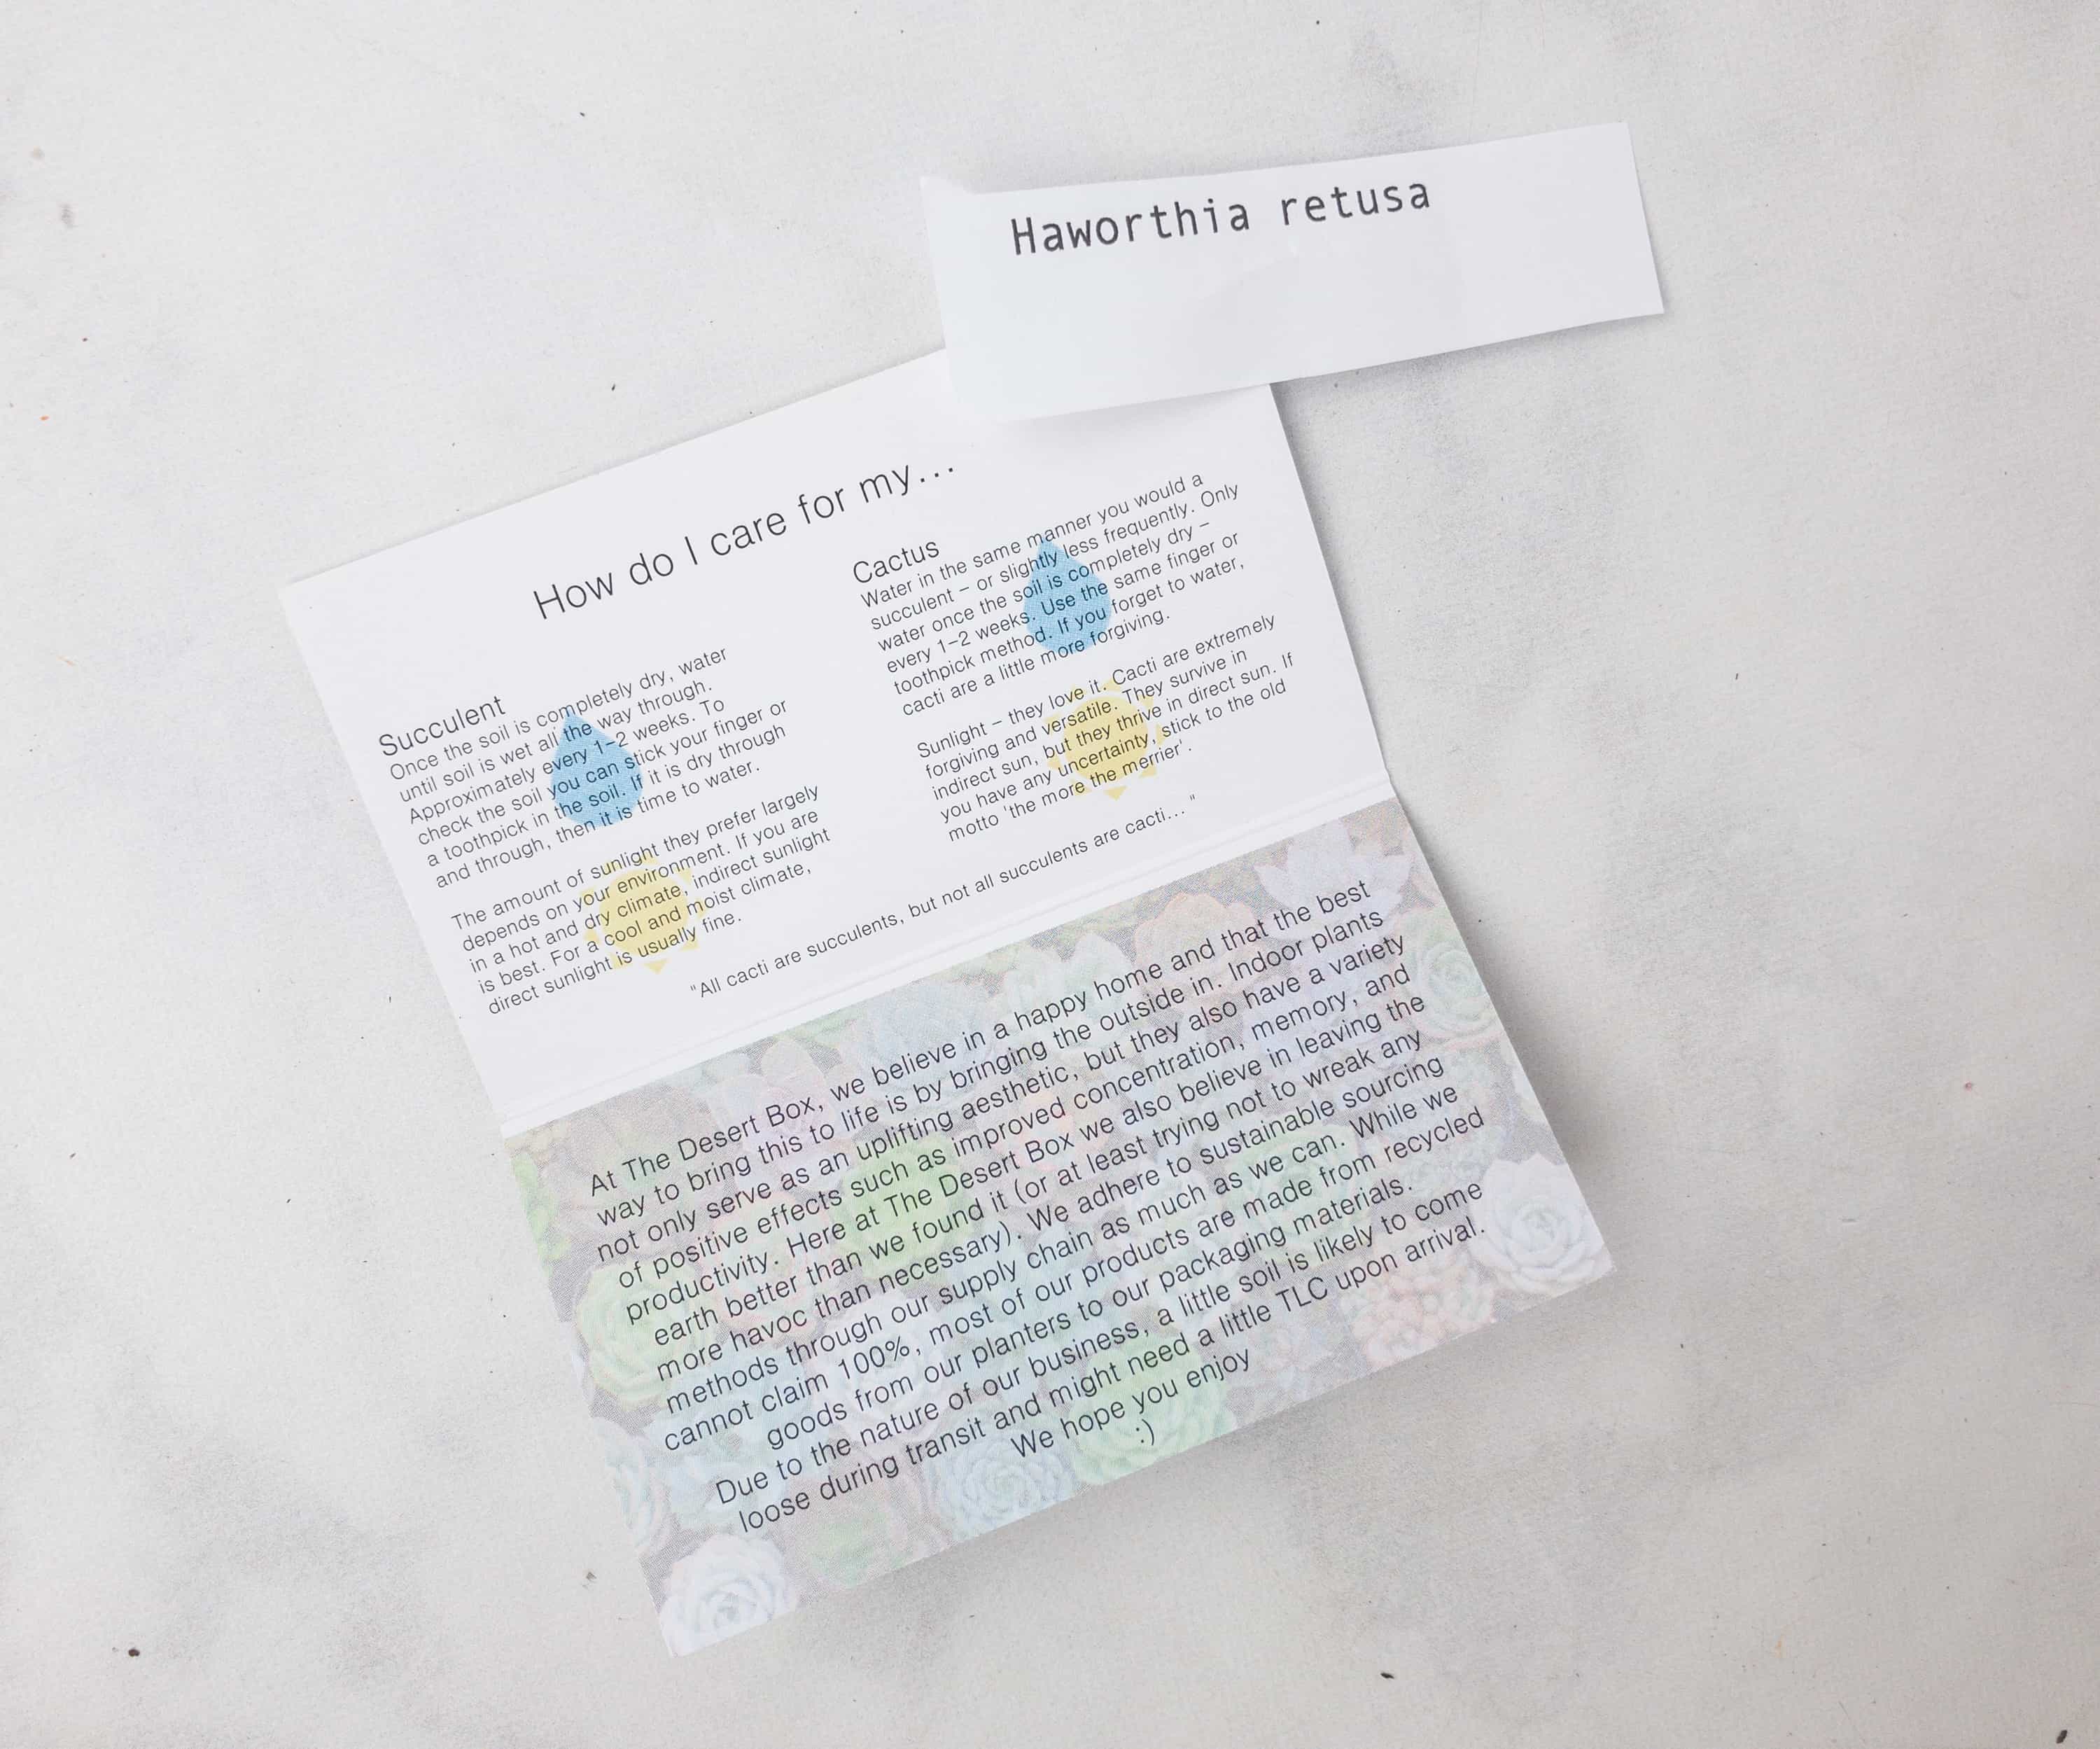 Haworthia retusa
How do I care for my...
Succulent
Once the soil is completely dry, water
until soil is wet all the way through.
Approximately every 1–2 weeks. To
check the soil you can stick your finger or
a toothpick in the soil. If it is dry through
and through, then it is time to water.
The amount of sunlight they prefer largely
depends on your environment. If you are
in a hot and dry climate, indirect sunlight
is best. For a cool and moist climate,
direct sunlight is usually fine.
Cactus
Water in the same manner you would a
succulent – or slightly less frequently. Only
water once the soil is completely dry –
every 1–2 weeks. Use the same finger or
toothpick method. If you forget to water,
cacti are a little more forgiving.
Sunlight – they love it. Cacti are extremely
forgiving and versatile. They survive in
indirect sun, but they thrive in direct sun. If
you have any uncertainty, stick to the old
motto 'the more the merrier'.
"All cacti are succulents, but not all succulents are cacti... "
At The Desert Box, we believe in a happy home and that the best
way to bring this to life is by bringing the outside in. Indoor plants
not only serve as an uplifting aesthetic, but they also have a variety
of positive effects such as improved concentration, memory, and
productivity. Here at The Desert Box we also believe in leaving the
earth better than we found it (or at least trying not to wreak any
more havoc than necessary). We adhere to sustainable sourcing
methods through our supply chain as much as we can. While we
cannot claim 100%, most of our products are made from recycled
goods from our planters to our packaging materials.
Due to the nature of our business, a little soil is likely to come
loose during transit and might need a little TLC upon arrival.
We hope you enjoy
:)